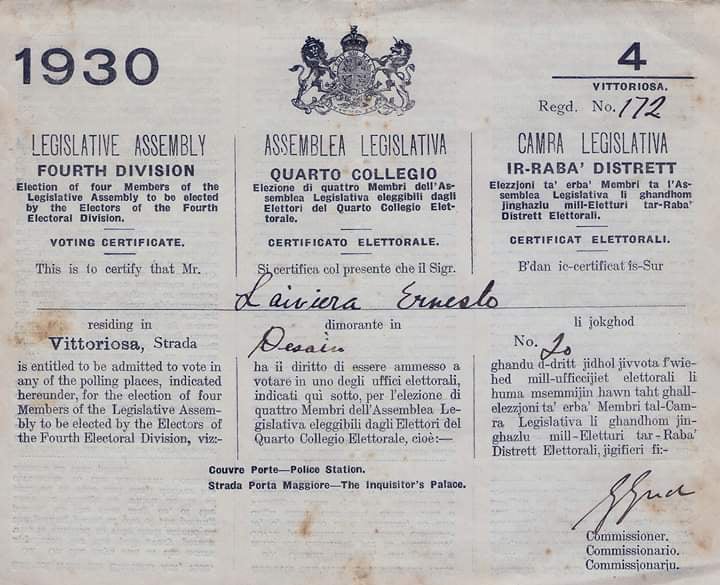 1930
4
VITTORIOSA.
Regd. No. 172
LEGISLATIVE ASSEMBLY
FOURTH DIVISION
Election of four Members of the
Legislative Assembly to be elected
by the Electors of the Fourth
Electoral Division.
VOTING CERTIFICATE.
This is to certify that Mr.
ASSEMBLEA LEGISLATIVA
QUARTO COLLEGIO
Elezione di quattro Membri dell'As-
semblea Legislativa eleggibili dagli
Elettori del Quarto Collegio Elet-
torale.
CERTIFICATO ELETTORALE.
Si certifica col presente che il Sigr.
CAMRA LEGISLATIVA
IR-RABA' DISTRETT
Elezzjoni ta' erba' Membri ta l'As-
semblea Legislativa li ghandhom
jinghazlu mill-Eletturi tar-Raba'
Distrett Elettorali.
CERTIFICAT ELETTORALI.
B'dan ic-certificat is-Sur
Laiviera Ernesto
residing in
Vittoriosa, Strada
is entitled to be admitted to vote in
any of the polling places, indicated
hereunder, for the election of four
Members of the Legislative Assem-
bly to be elected by the Electors of
the Fourth Electoral Division, viz:-
dimorante in
ha il diritto di essere ammesso a
votare in uno degli uffici elettorali,
indicati quì sotto, per l'elezione di
quattro Membri dell'Assemblea Le-
gislativa eleggibili dagli Elettori del
Quarto Collegio Elettorale, cioè:—
li jokghod
No. 20
ghandu d-dritt jidhol jivvota f'wie-
hed mill-ufficcijiet elettorali li
huma msemmijin hawn taht ghall-
elezzjoni ta' erba' Membri tal-Cam-
ra Legislativa li ghandhom jin-
ghazlu mill-Eletturi tar-Raba'
Distrett Elettorali, jigifieri fi:-
Couvre Porte—Police Station.
Strada Porta Maggiore—The Inquisitor's Palace.
Commissioner.
Commissionario.
Commissjonarju.